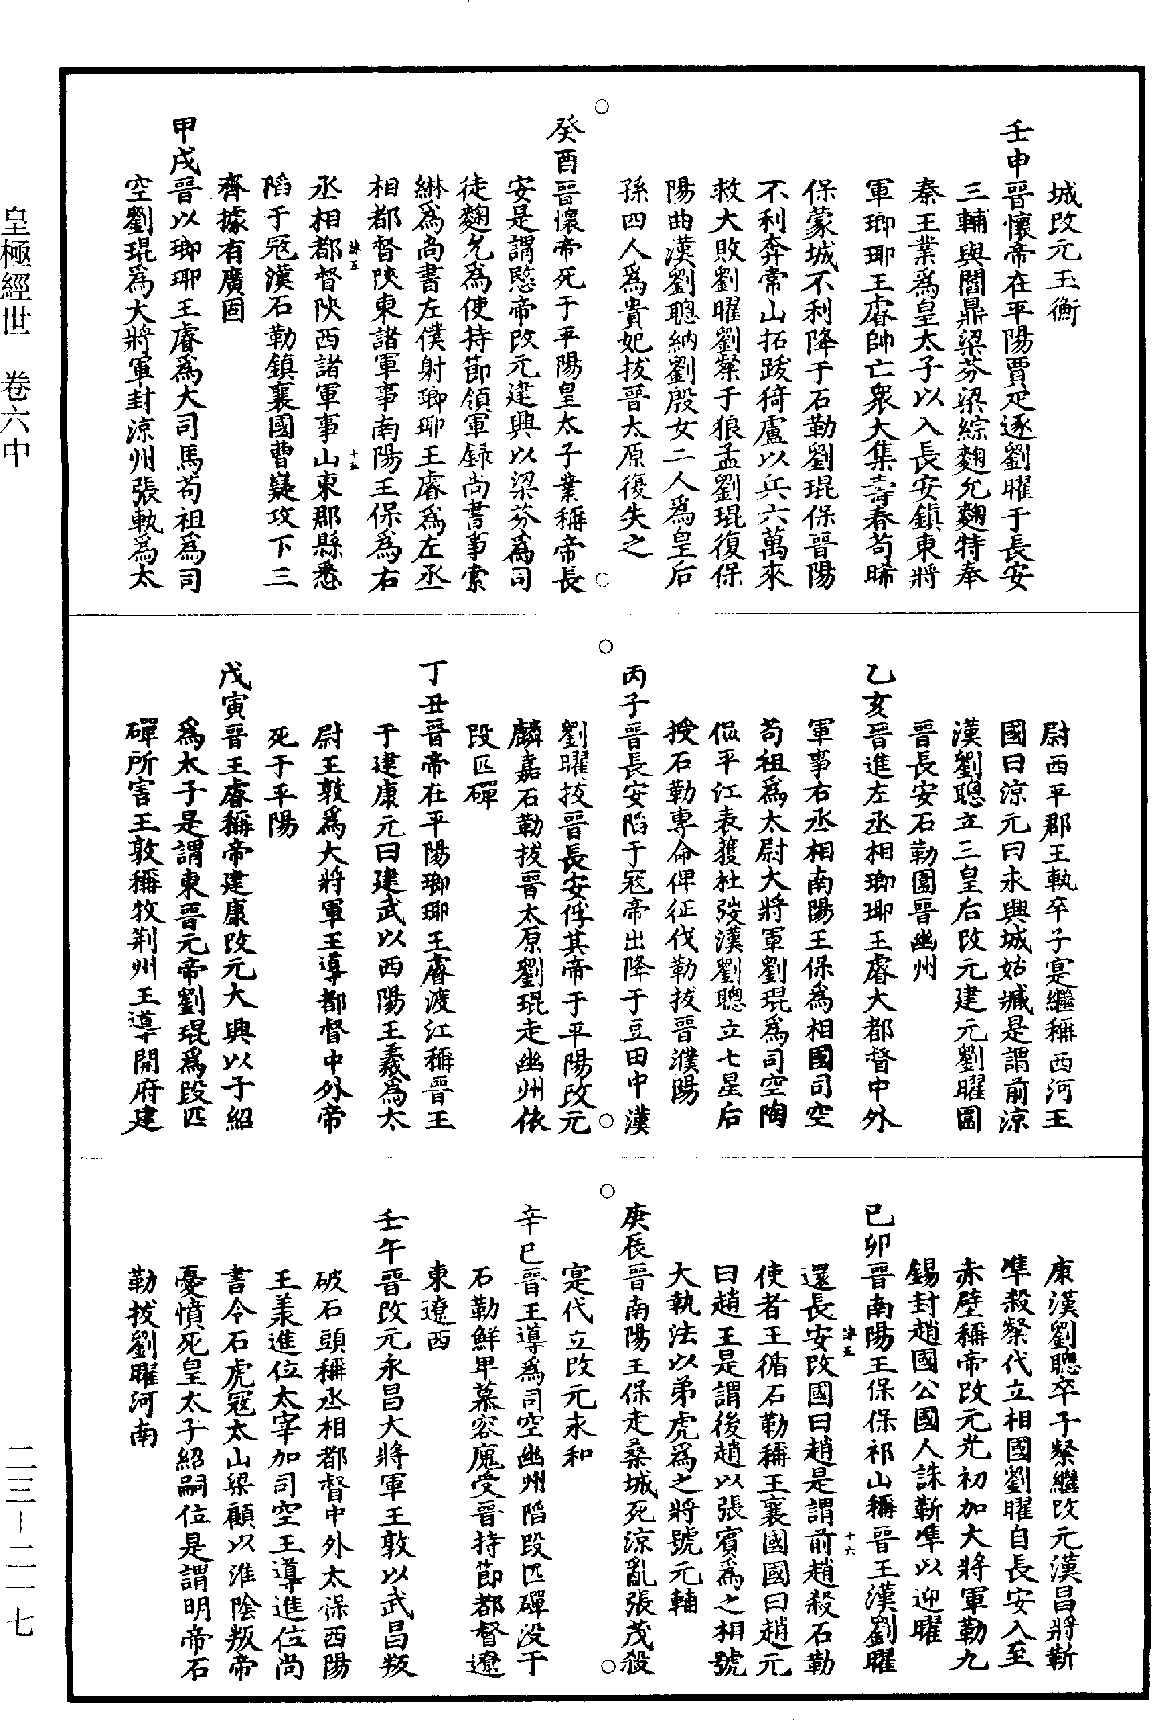 城改元玉衡
壬申晉懷帝在平陽賈疋逐劉曜于長安
三輔與閻鼎梁芬梁綜麴允麴特奉
秦王業爲皇太子以入長安鎮東將
軍瑯琊王睿帥亡衆大集壽春苟晞
保蒙城不利降于石勒劉琨保晉陽
不利奔常山拓跋猗盧以兵六萬來
救大敗劉曜劉粲于狼孟劉琨復保
陽曲漢劉聰納劉殷女二人爲皇后
孫四人爲貴妃拔晉太原復失之
癸酉晉懷帝死于平陽皇太子業稱帝長
安是謂愍帝改元建興以梁芬爲司
徒麴允爲使持節領軍録尚書事索
綝爲尚書左僕射瑯琊王睿爲左丞
相都督陝東諸軍事南陽王保爲右
丞相都督陝西諸軍事山東郡縣悉
陷于寇漢石勒鎮襄國曹嶷攻下三
齊據有廣固
甲戌晉以瑯琊王睿爲大司馬苟祖爲司
空劉琨爲大將軍封涼州張軌爲太
尉西平郡王軌卒子寔繼稱西河王
國曰涼元曰永興城姑臧是謂前涼
漢劉聰立三皇后改元建元劉曜圍
晉長安石勒圍晉幽州
乙亥晉進左丞相瑯琊王睿大都督中外
軍事右丞相南陽王保爲相國司空
苟祖爲太尉大將軍劉琨爲司空陶
侃平江表獲杜弢漢劉聰立七星后
授石勒專命俾征伐勒拔晉濮陽
丙子晉長安陷于寇帝出降于豆田中漢
劉曜拔晉長安俘其帝于平陽改元
麟嘉石勒拔晉太原劉琨走幽州依
段匹磾
丁丑晉帝在平陽瑯琊王睿渡江稱晉王
于建康元曰建武以西陽王羲爲太
尉王敦爲大將軍王導都督中外帝
死于平陽
戊寅晉王睿稱帝建康改元大興以子紹
爲太子是謂東晉元帝劉琨爲段匹
磾所害王敦稱牧荆州王導開府建
康漢劉聰卒子粲繼改元漢昌將靳
準殺粲代立相國劉曜自長安入至
赤壁稱帝改元光初加大將軍勒九
錫封趙國公國人誅靳準以迎曜
己卯晉南陽王保保祁山稱晉王漢劉曜
還長安改國曰趙是謂前趙殺石勒
使者王循石勒稱王襄國國曰趙元
曰趙王是謂後趙以張賓爲之相號
大執法以弟虎爲之將號元輔
庚辰晉南陽王保走桑城死涼亂張茂殺
寔代立改元永和
辛巳晉王導爲司空幽州陷段匹磾没于
石勒鮮卑慕容廆受晉持節都督遼
東遼西
壬午晉改元永昌大將軍王敦以武昌叛
破石頭稱丞相都督中外太保西陽
王羕進位太宰加司空王導進位尚
書令石虎寇太山梁顧以淮陰叛帝
憂憤死皇太子紹嗣位是謂明帝石
勒拔劉曜河南
皇極經世　卷六中
二三－二一七